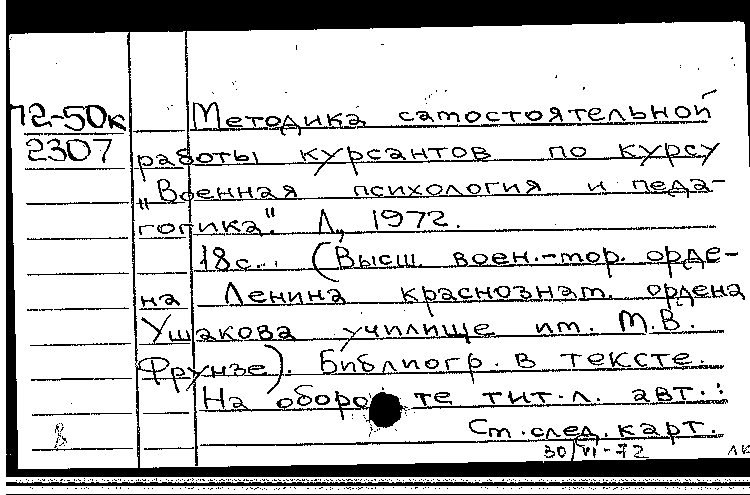 72-50к
2307
Методика самостоятельной
работы курсантов по курсу
„Военная психология и педа-
гогика". Л., 1972.
18с. (Высш. воен.-мор. орде-
на Ленина краснознам. ордена
Ушакова училище им. М.В.
Фрунзе). Библиогр. в тексте.
На обороте тит. л. авт.:
См. след. карт.
30/VI-72